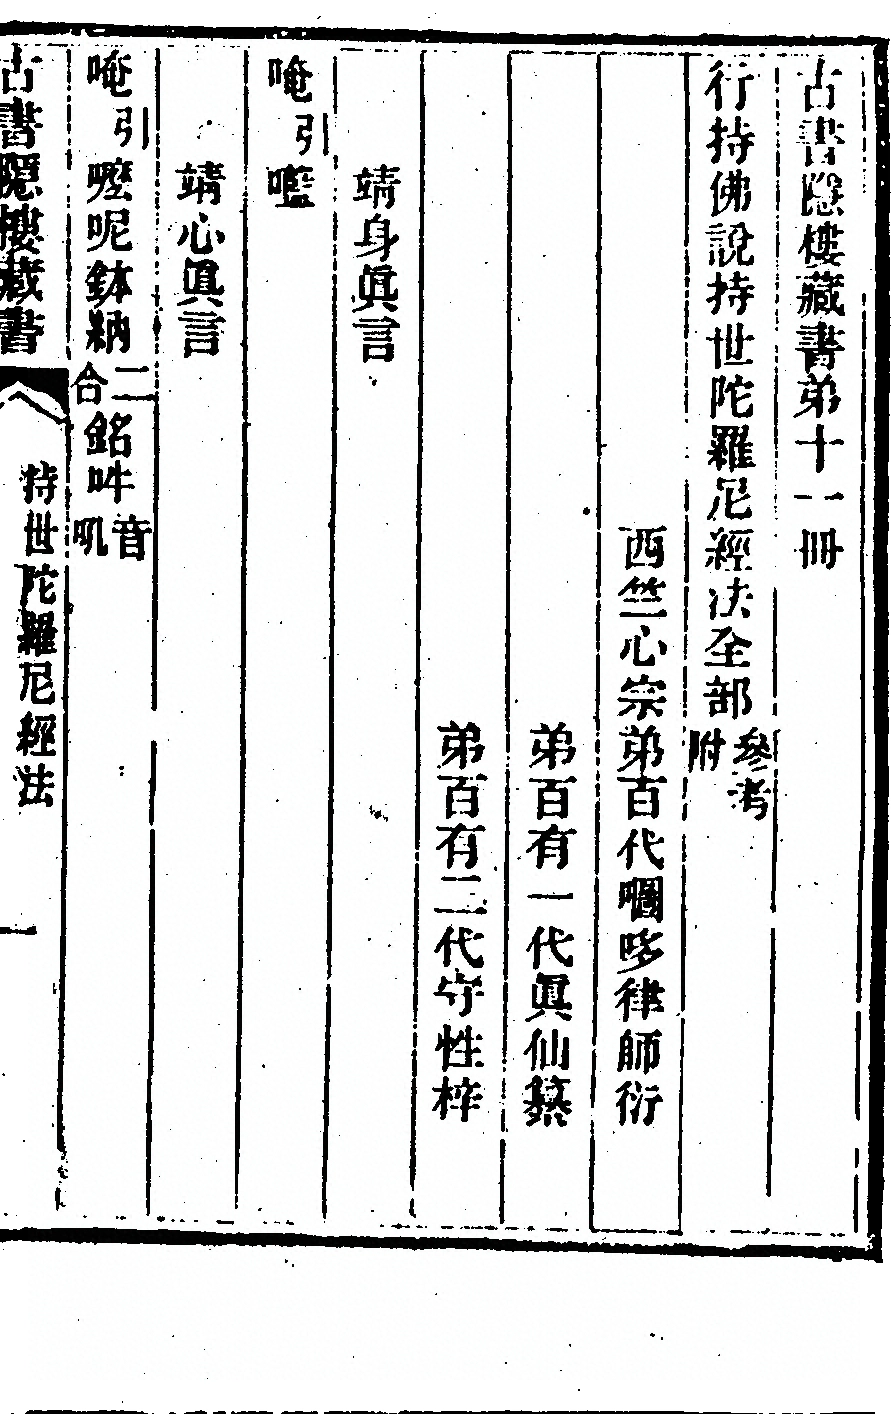 古書隱樓藏書弟十一冊
行持佛說持世陀羅尼經法全部參考附
西竺心宗弟百代嚪哆律師衍
弟百有一代眞仙纂
弟百有二代守性梓
靖身眞言
唵引㘕
靖心眞言
唵引嚦呢鉢納二合銘吽音吼
古書隱樓藏書
持世陀羅尼經法
一